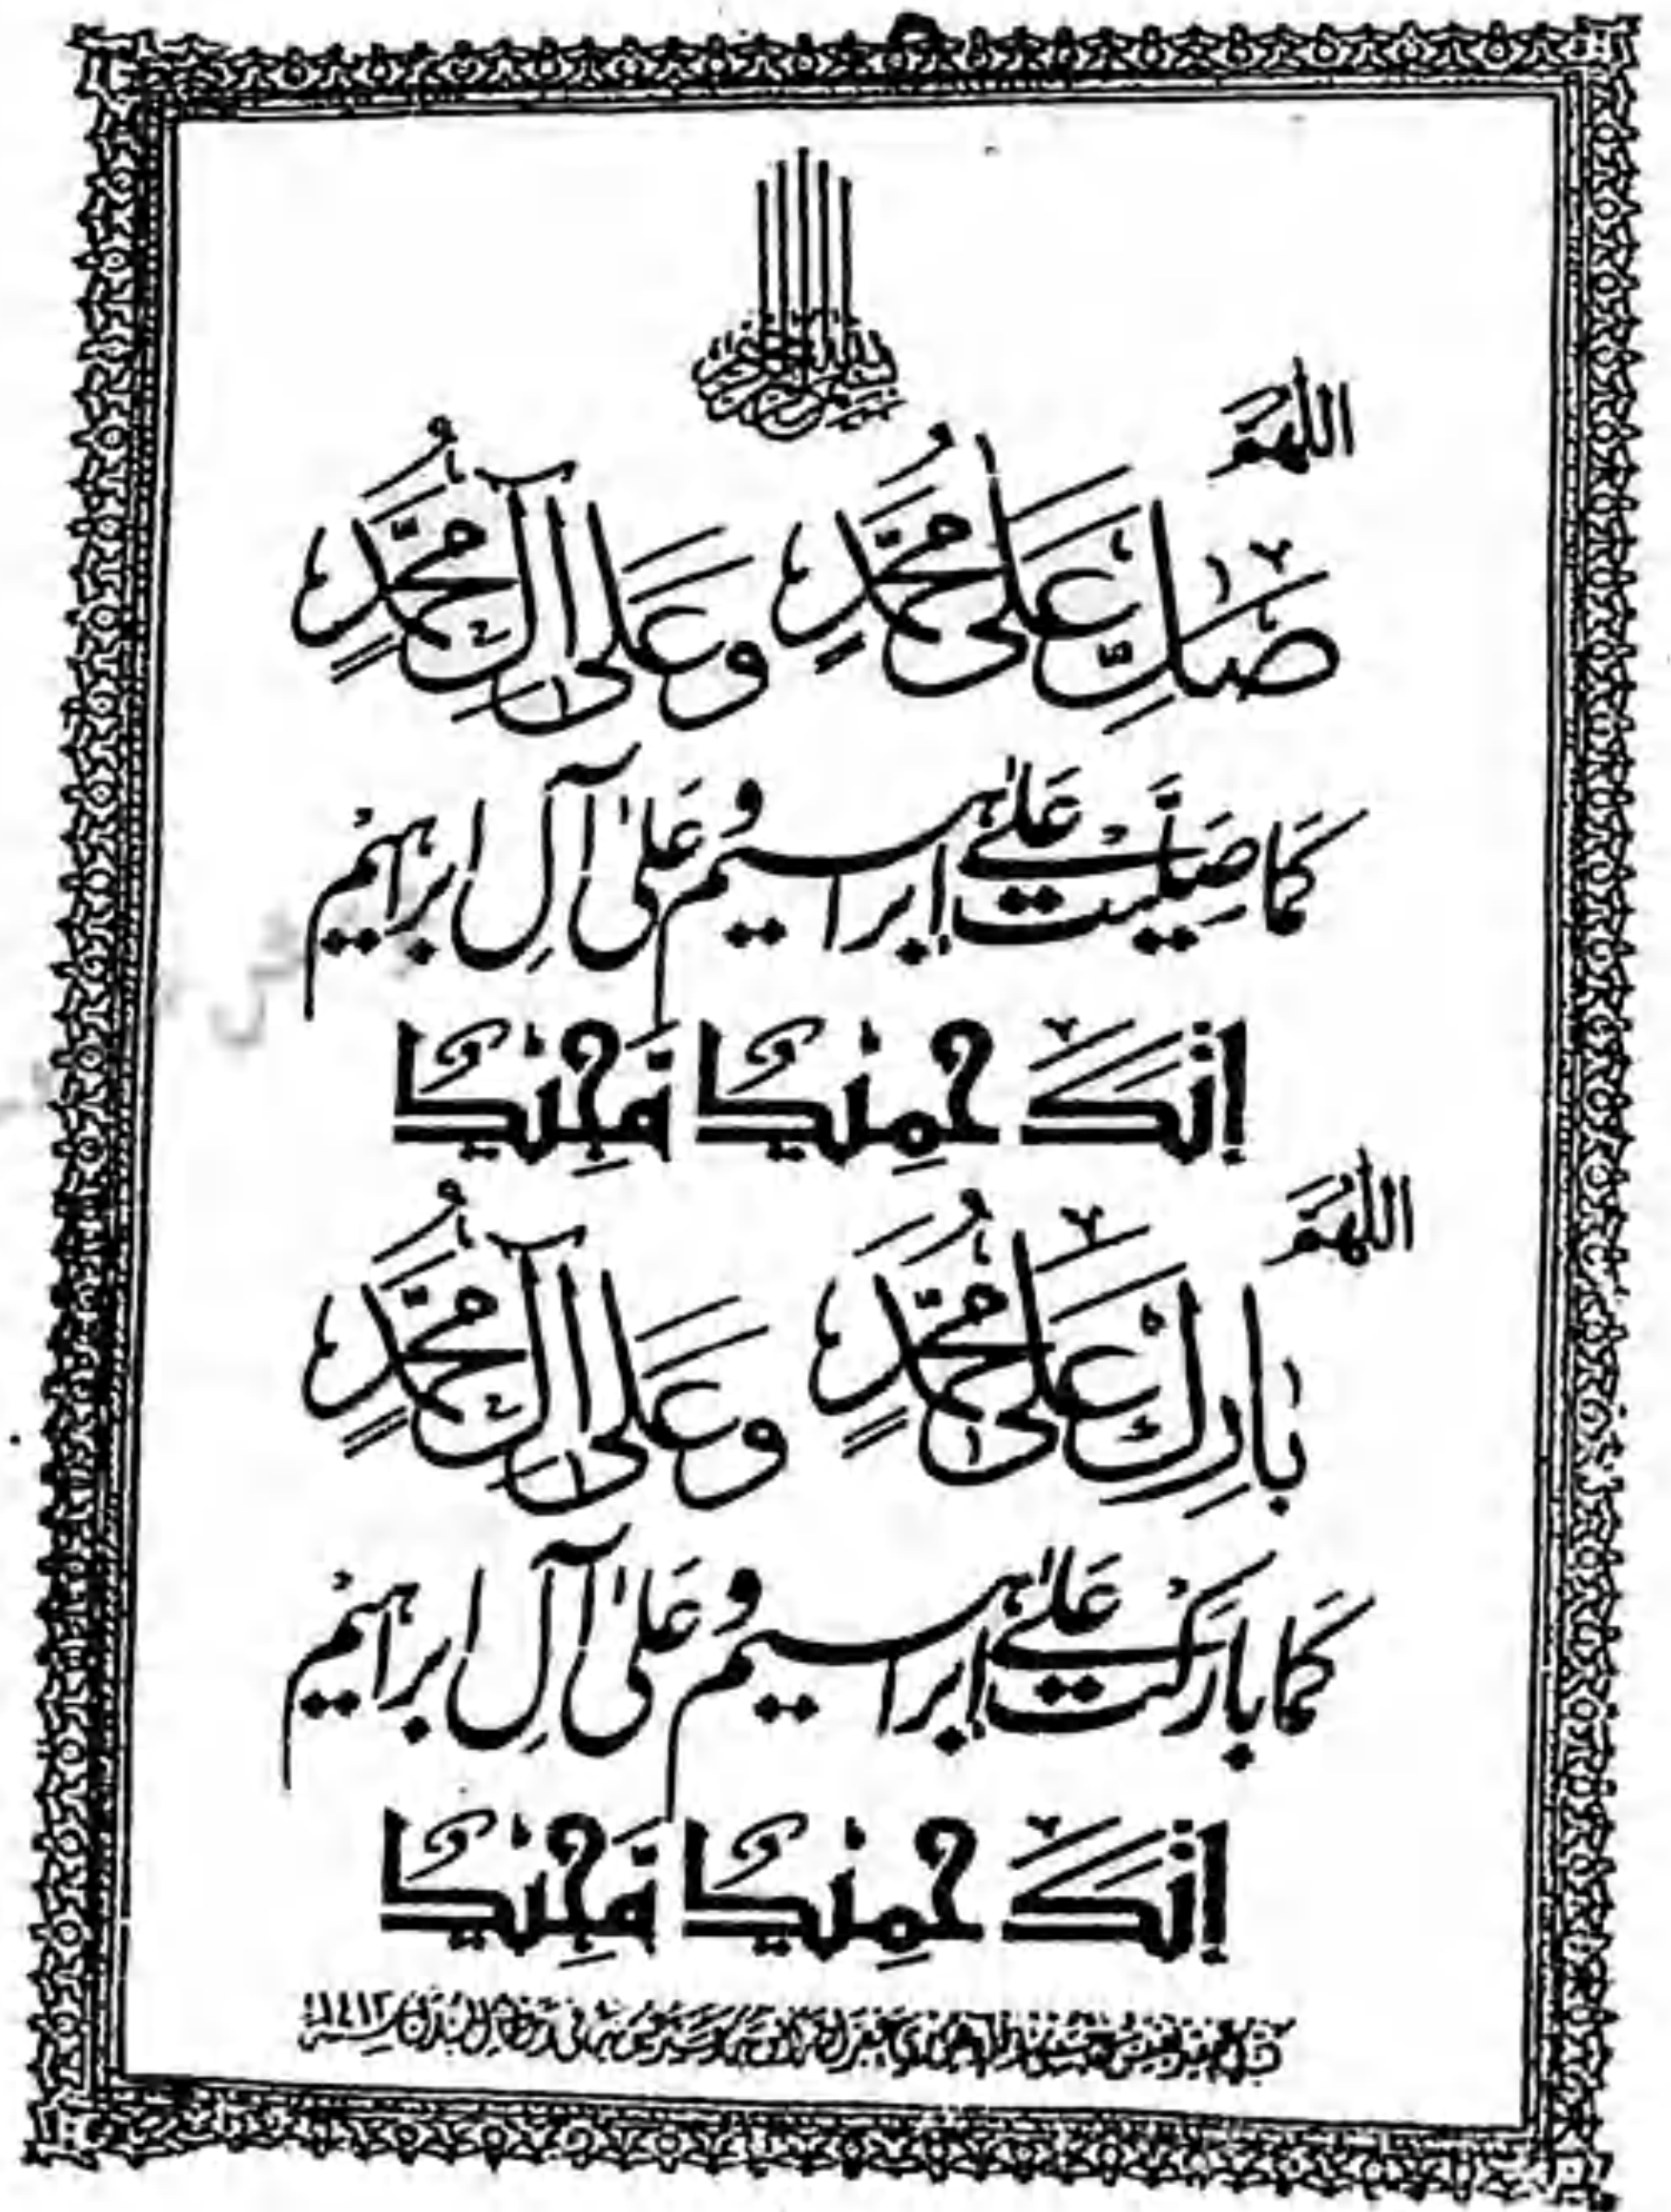 بسم الله الرحمن الرحيم
اللَّهُمَّ
صَلِّ عَلَى مُحَمَّدٍ وَعَلَى آلِ مُحَمَّدٍ
كَمَا صَلَّيْتَ عَلَىٰ إِبْرَاهِيمَ وَعَلَىٰ آلِ إِبْرَاهِيمَ
إِنَّكَ حَمِيدٌ مَّجِيدٌ
اللَّهُمَّ
بَارِكْ عَلَى مُحَمَّدٍ وَعَلَى آلِ مُحَمَّدٍ
كَمَا بَارَكْتَ عَلَىٰ إِبْرَاهِيمَ وَعَلَىٰ آلِ إِبْرَاهِيمَ
إِنَّكَ حَمِيدٌ مَّجِيدٌ
١٤١٢